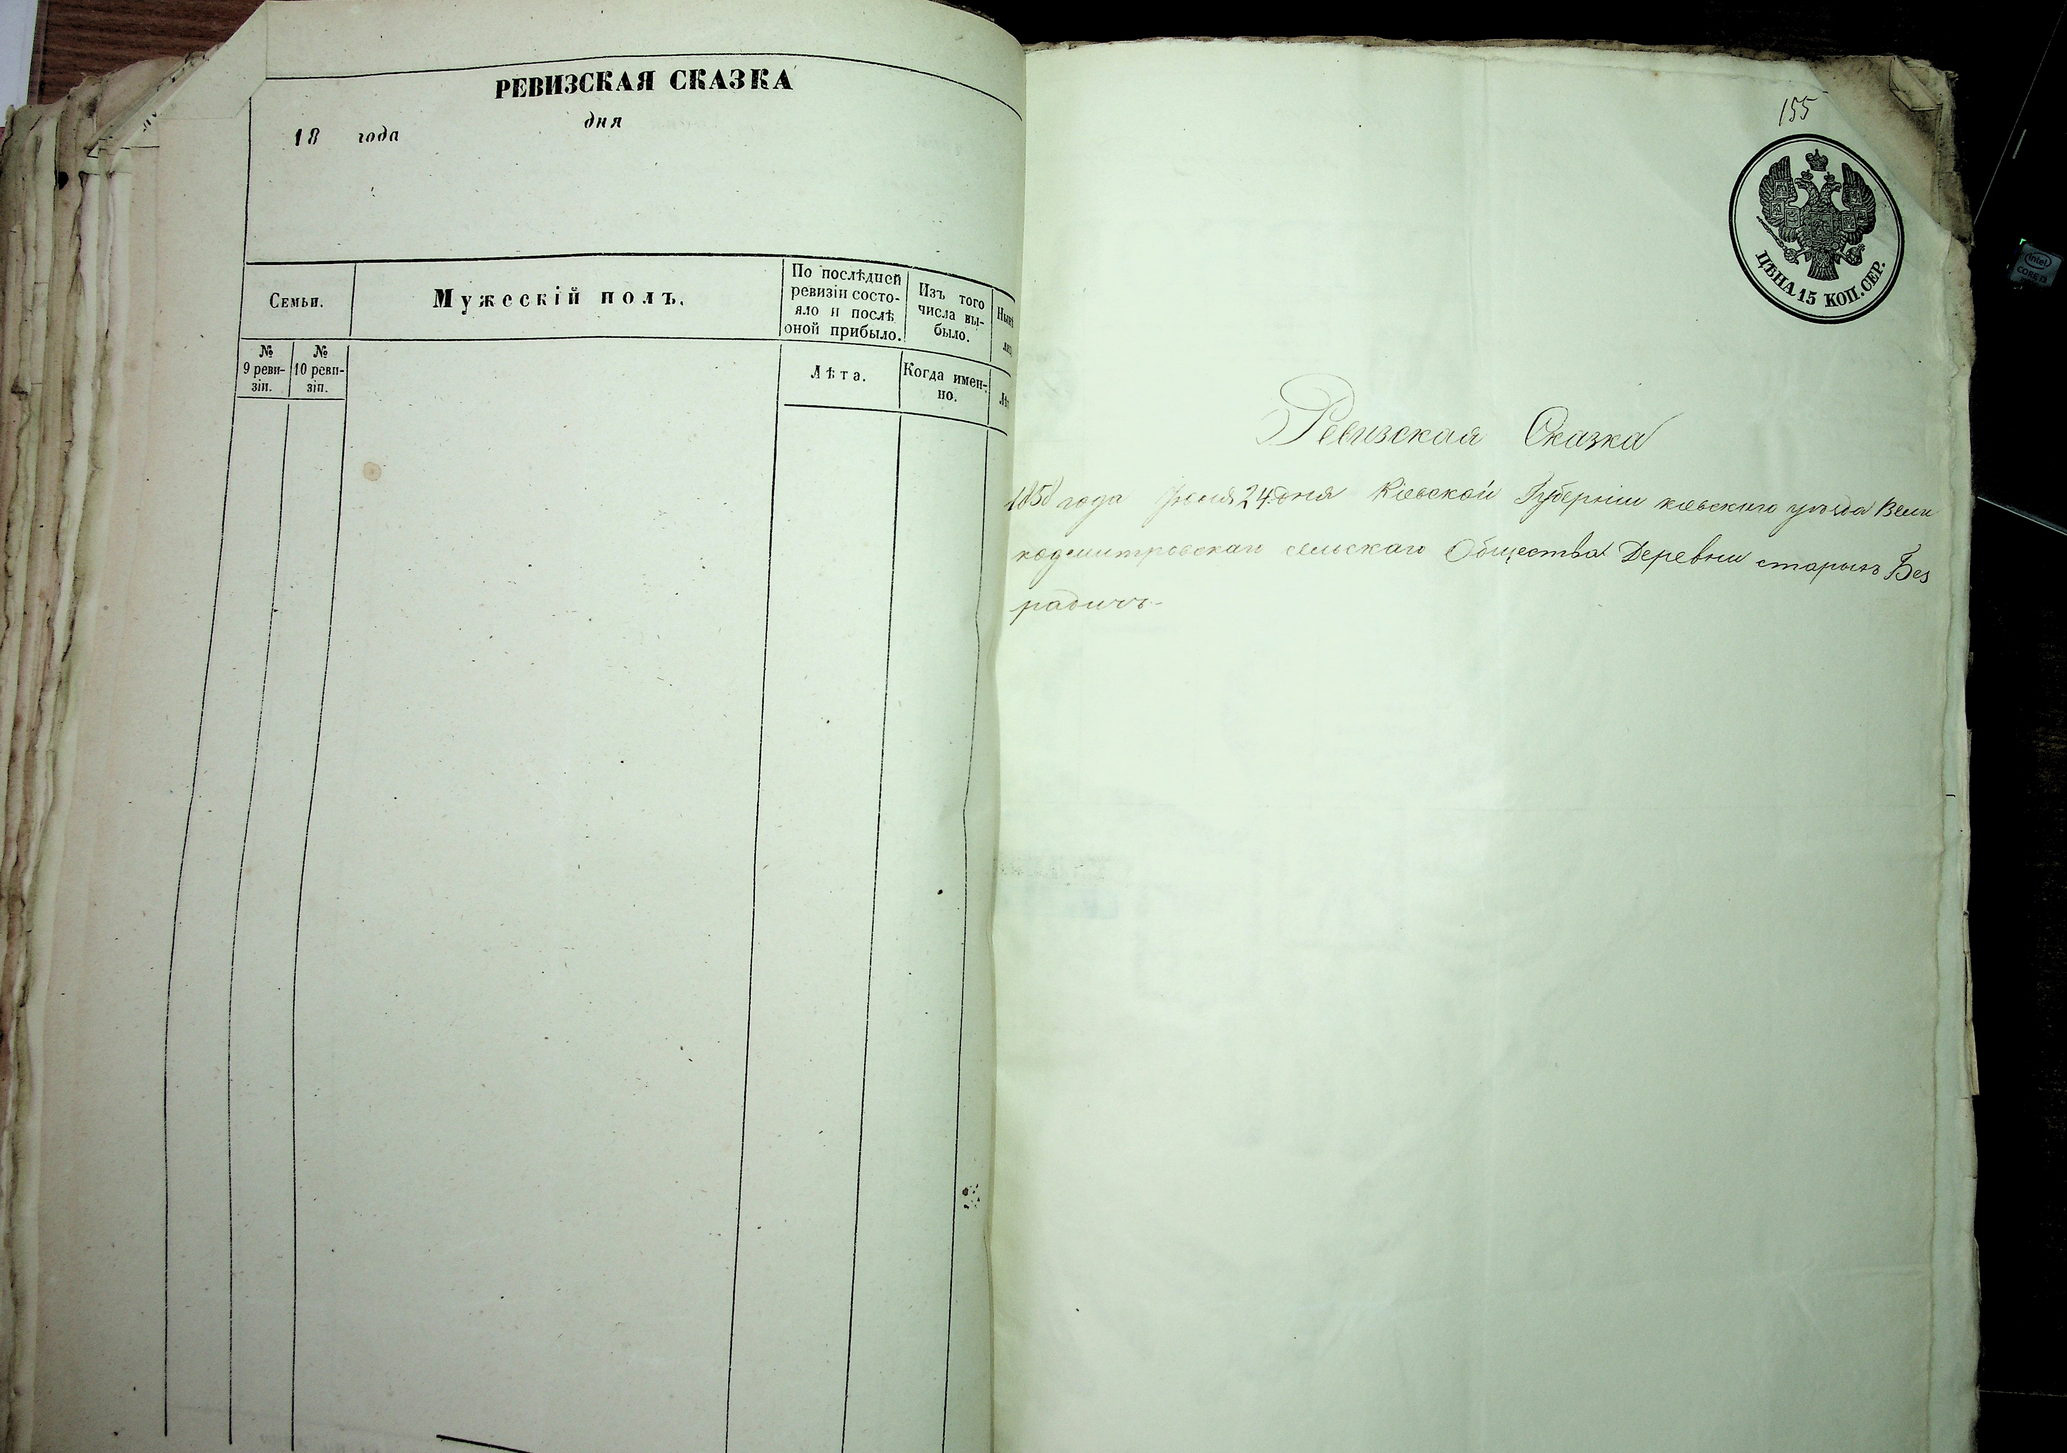 РЕВИЗСКАЯ СКАЗКА
18 года дня
Семьи.
Мужескій полъ.
По послѣдней
ревизіи состо-
яло и послѣ
оной прибыло.
Изъ того
числа вы-
было.
№
9 реви-
зіи.
№
10 реви-
зіи.
Лѣта.
Когда имен-
но.
155
ЦѢНА 15 КОП. СЕР.
Ревизская Сказка
1858 года 24 дня Кіевской Губерніи кіевскаго уѣзда Вели
кодмитровскаго сельскаго Общества Деревни старыхъ Без
радичъ
intel
CORE i3